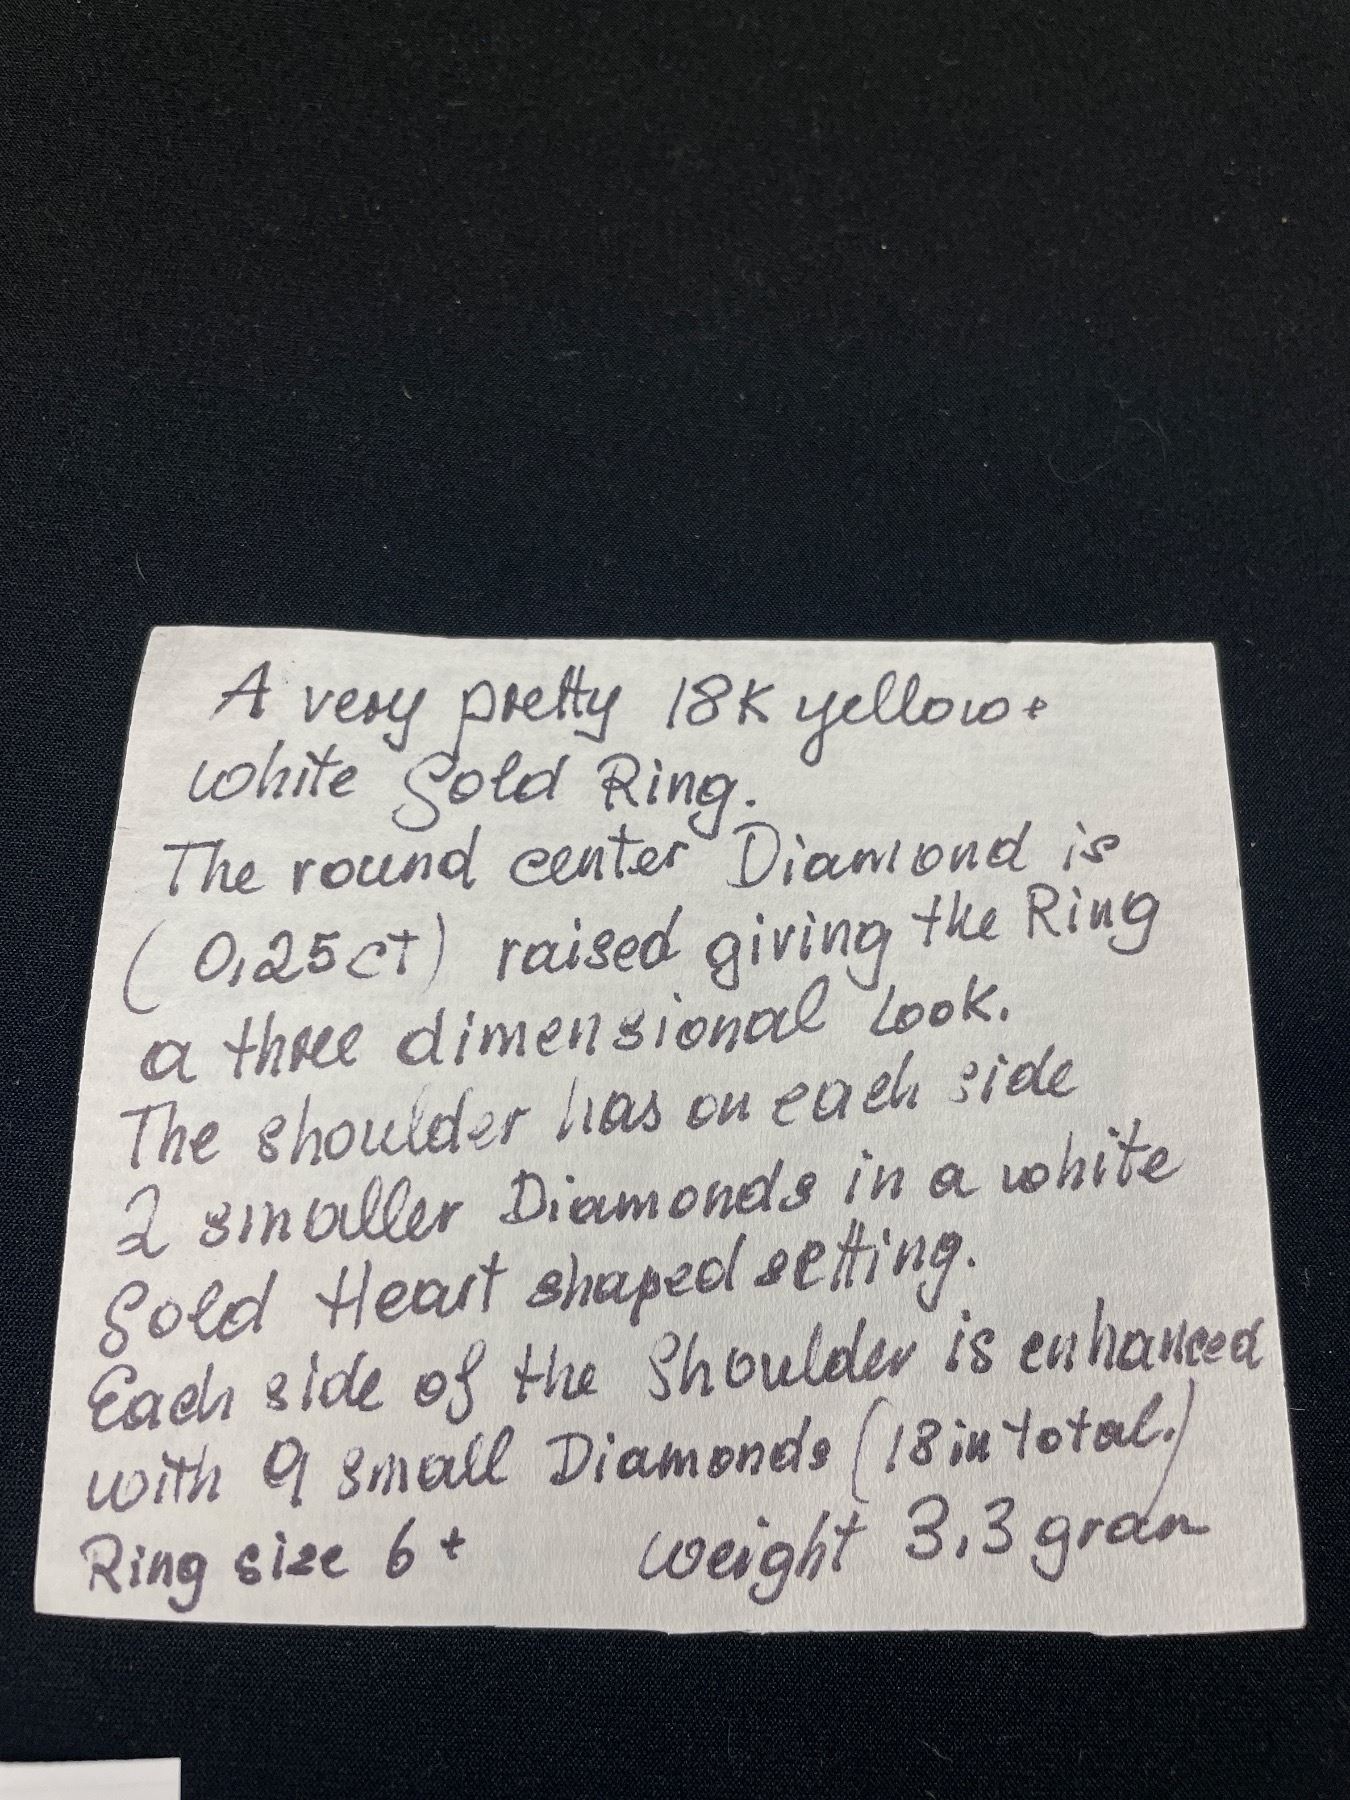 A very pretty 18K yellow +
white Gold Ring.
The round center Diamond is
(0,25ct) raised giving the Ring
a three dimensional Look.
The shoulder has on each side
2 smaller Diamonds in a white
Gold Heart shaped setting.
Each side of the Shoulder is enhanced
with 9 small Diamonds (18 in total.)
Ring size 6+ weight 3,3 gram